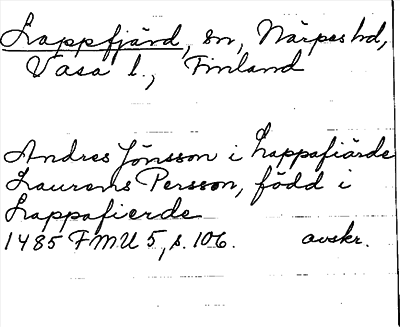 Lappfjärd, sn, Närpes hd,
Vasa l., Finland
Andres Jönsson i Lappafiärde
Laurens Persson, född i
Lappafierde
1485 FMU 5, s. 106. avskr.